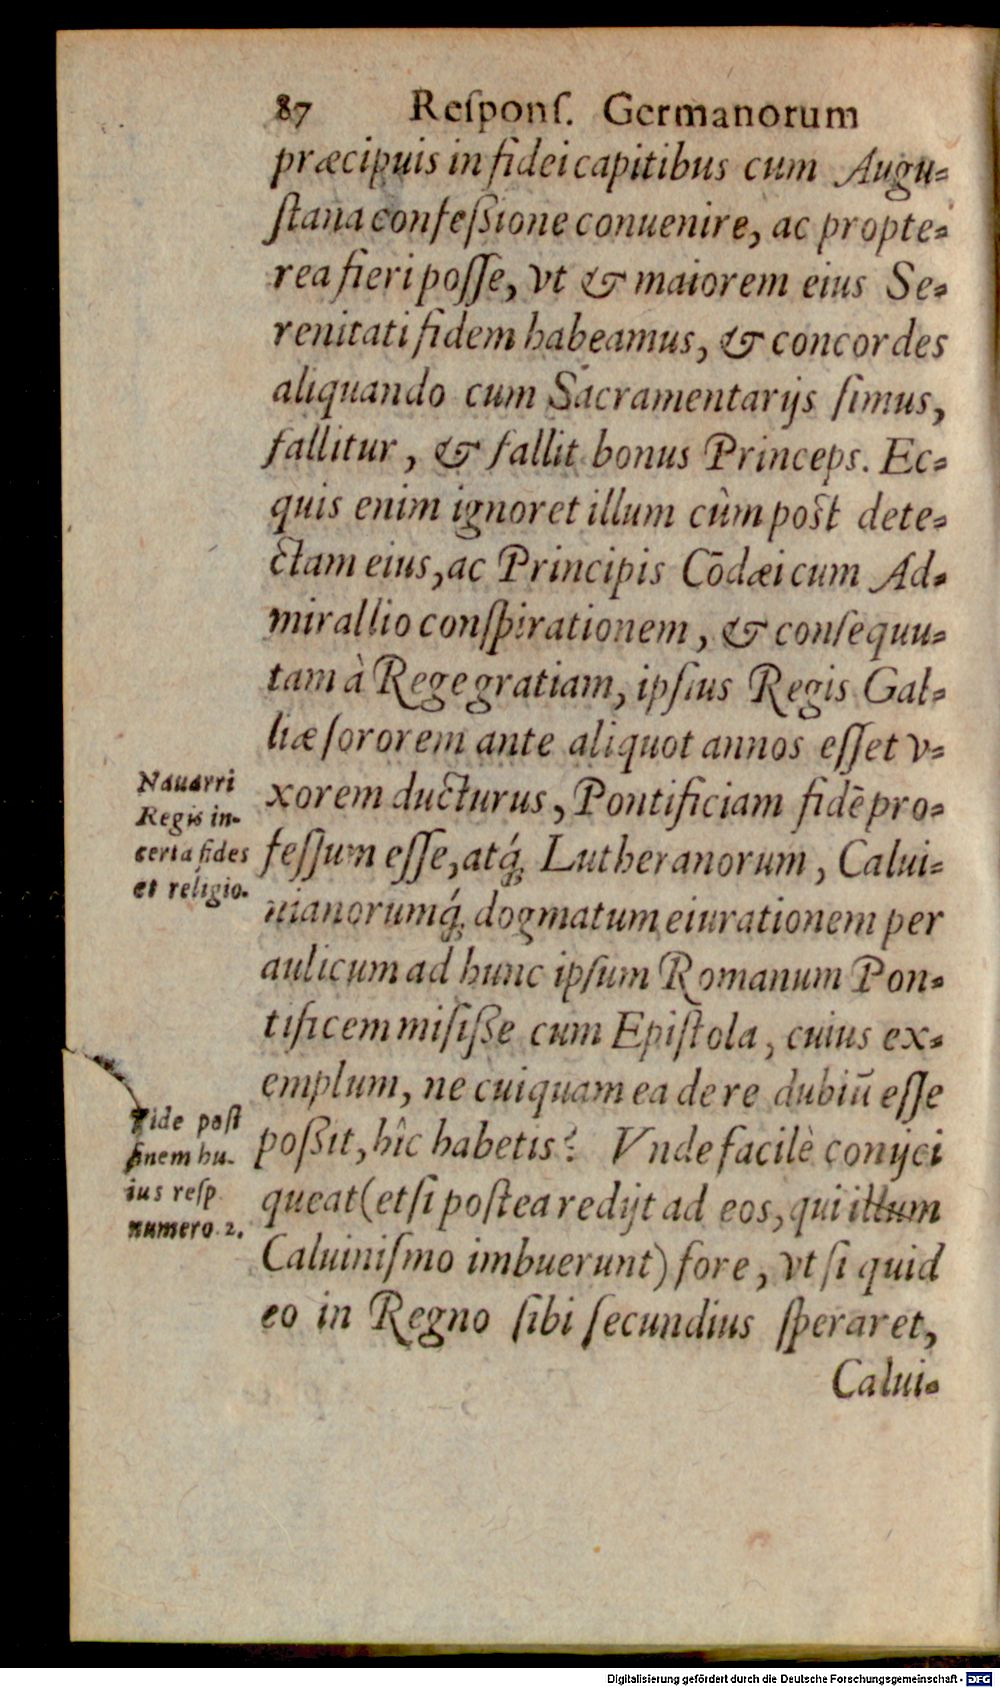 87 Reſponſ. Germanorum
præcipuis in fidei capitibus cum Augu-
ſtana confeßione conuenire, ac propte-
rea fieri poſſe, vt & maiorem eius Se-
renitati fidem habeamus, & concordes
aliquando cum Sacramentarijs ſimus,
fallitur, & fallit bonus Princeps. Ec-
quis enim ignoret illum cùm poſt dete-
ctam eius, ac Principis Cõdæi cum Ad-
mirallio conſpirationem, & conſequu-
tam à Rege gratiam, ipſius Regis Gal-
liæ ſororem ante aliquot annos eſſet v-
xorem ducturus, Pontificiam fidẽ pro-
feſſum eſſe, atq́; Lutheranorum, Calui-
nianorumq́; dogmatum eiurationem per
aulicum ad hunc ipſum Romanum Pon-
tificem miſiſße cum Epiſtola, cuius ex-
emplum, ne cuiquam ea de re dubiũ eſſe
poßit, hîc habetis? Vnde facilè conijci
queat (etſi poſtea redijt ad eos, qui illum
Caluiniſmo imbuerunt) fore, vt ſi quid
eo in Regno ſibi ſecundius ſperaret,
Calui-
Nauarri
Regis in-
certa fides
et religio.
Vide poſt
finem hu-
ius reſp.
numero 2.
Digitalisierung gefördert durch die Deutsche Forschungsgemeinschaft - DFG